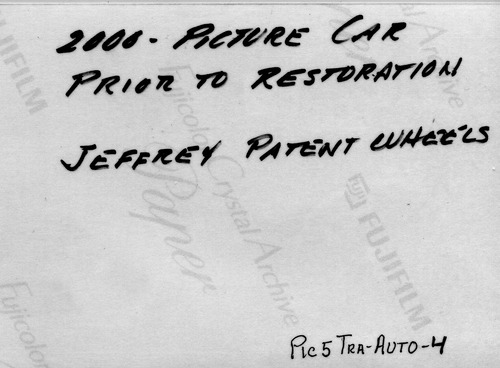 2000 - PICTURE CAR
PRIOR TO RESTORATION
JEFFREY PATENT WHEELS
PIC5 TRA-AUTO-4
FUJIFILM
Fujicolor Crystal Archive Paper
FUJIFILM
Fujicolor
Archive